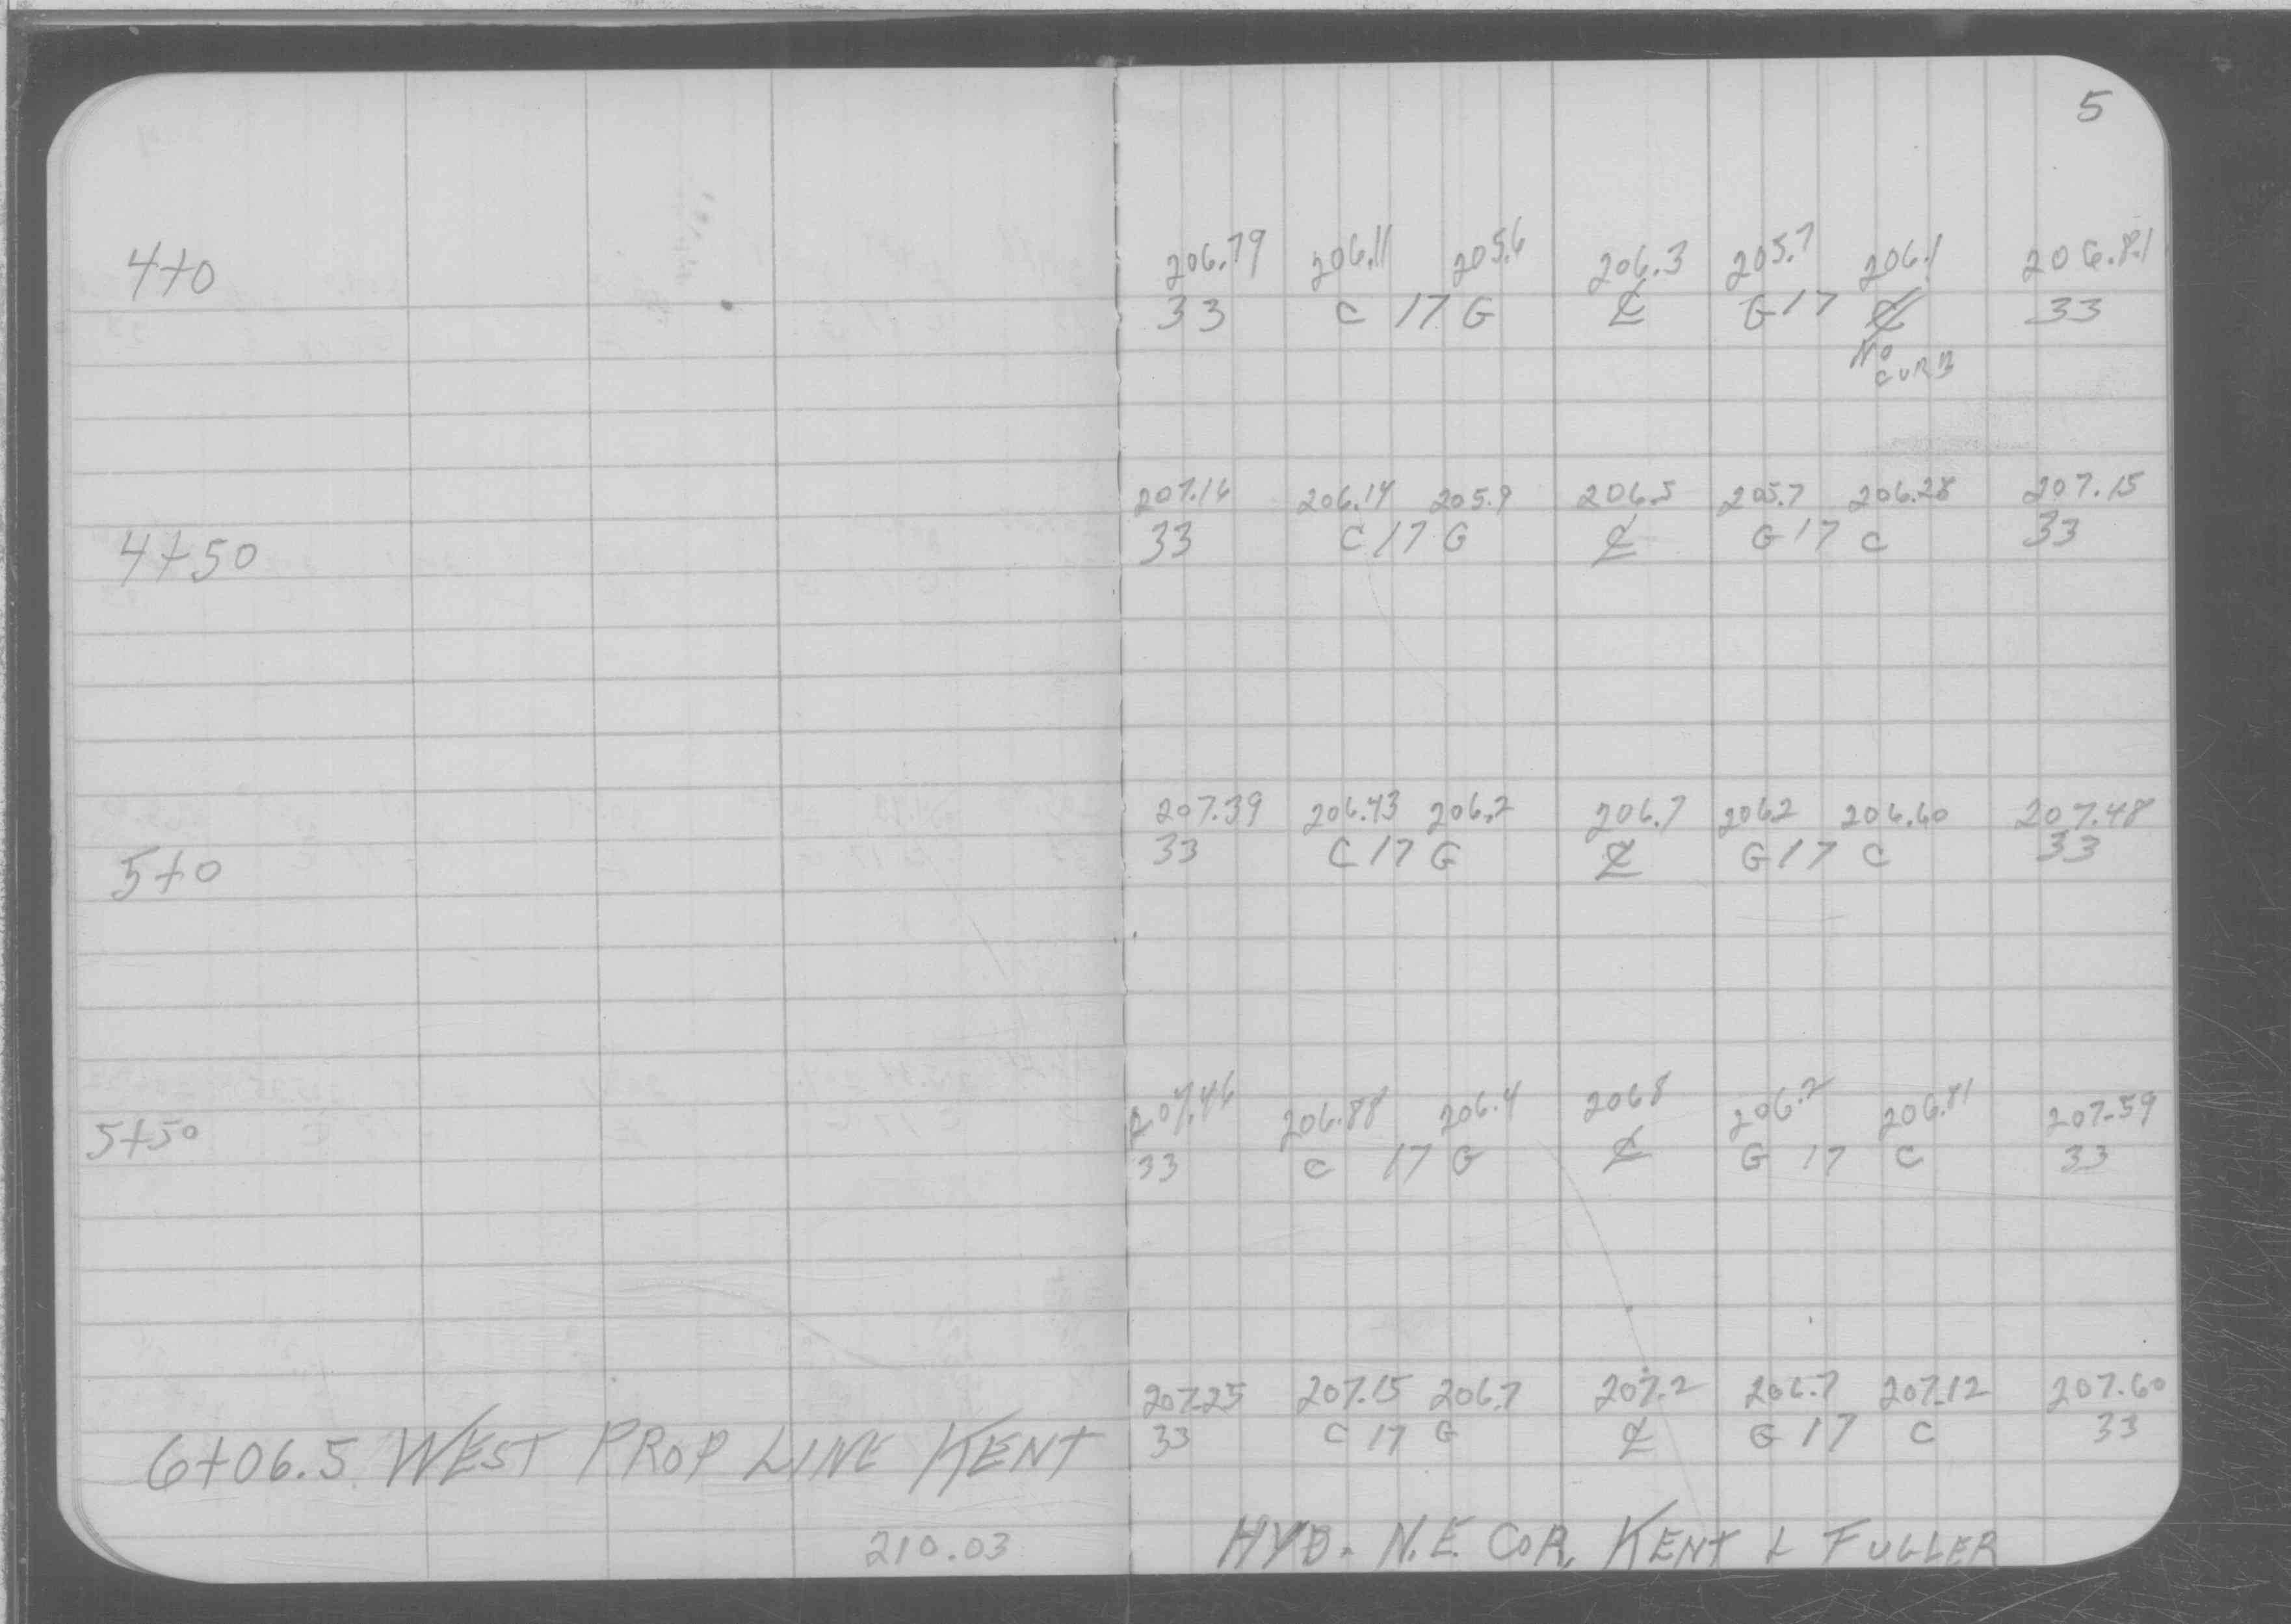 5
206.79 206.11 205.6 206.3 205.7 206.1 206.8.1
4+0 33 C 17 G ℄ G 17 ℄
33
No
CURB
207.16 206.14 205.9 206.5 205.7 206.28 207.15
4+50 33 C 17 G ℄ G 17 C 33
207.39 206.43 206.2 206.7 206.2 206.60 207.48
5+0 33 C 17 G ℄ G 17 C 33
207.46 206.88 206.4 206.8 206.2 206.81 207.59
5+50 33 C 17 G ℄ G 17 C 33
207.25 207.15 206.7 207.2 206.7 207.12 207.60
6+06.5 WEST PROP LINE KENT 33 C 17 G ℄ G 17 C 33
210.03 HYD. N.E. COR. KENT & FULLER